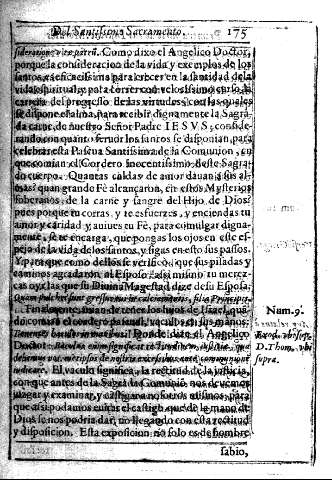 Del Santissimo Sacramento. 175
sideratione vitæ patrũ. Como dixo el Angelico Doctor,
porque la consideracion de la vida y exemplos de los
santos, es eficacissima para crecer en la santidad de la
vida espiritual, y para correr con velocissimo curso, la
carrera del progresso de las virtudes, con las quales
se dispone el alma, para recibir dignamente la Sagra-
da carne, de nuestro Señor Padre IESVS, conside-
rando, con quanto feruor los santos se disponian, para
celebrar esta Pascua Santissima de la Comunion, en
que comian el Cordero inocentissimo, deste Sagra-
do cuerpo. Quantas caldas de amor dauan a sus al-
mas: quan grande Fè alcançaron, en estos Mysterios
soberanos, de la carne y sangre del Hijo de Dios:
pues porque tu corras, y te esfuerzes, y enciendas tu
amor y caridad y auiues tu Fè, para comulgar digna-
mente, se te encarga, que pongas los ojos en este es-
pejo de la vida de los santos, y sigas en esto sus passos.
Y para que como dellos se verificò, que sus pisadas y
caminos agradaron al Esposo, assi mismo tu merez-
cas oyr las que su Diuina Magestad dize de su Esposa.
Quam pulchri sunt gressus tui in calceamentis, filia Principis.
Finalmente, auian de tener los hijos de Israel, quã-
do comian el cordero pasqual, baculos en sus manos.
Tenentes baculos in manibus. Donde dize el Angelico
Doctor:
iudicare. El baculo significa la rectitud de la justicia,
con que antes de la Sagrada Comuniõ, nos deuemos
juzgar y examinar, y castigarnos a nosotros mismos, para
que assi podamos euitar el castigo que de la mano de
Dios se nos podria dar, no llegando con esta rectitud
y disposicion. Esta exposicion no solo es de hombre
sabio,
Num. 9.
Exod. vbi sup.
D. Thom. vbi
supra.